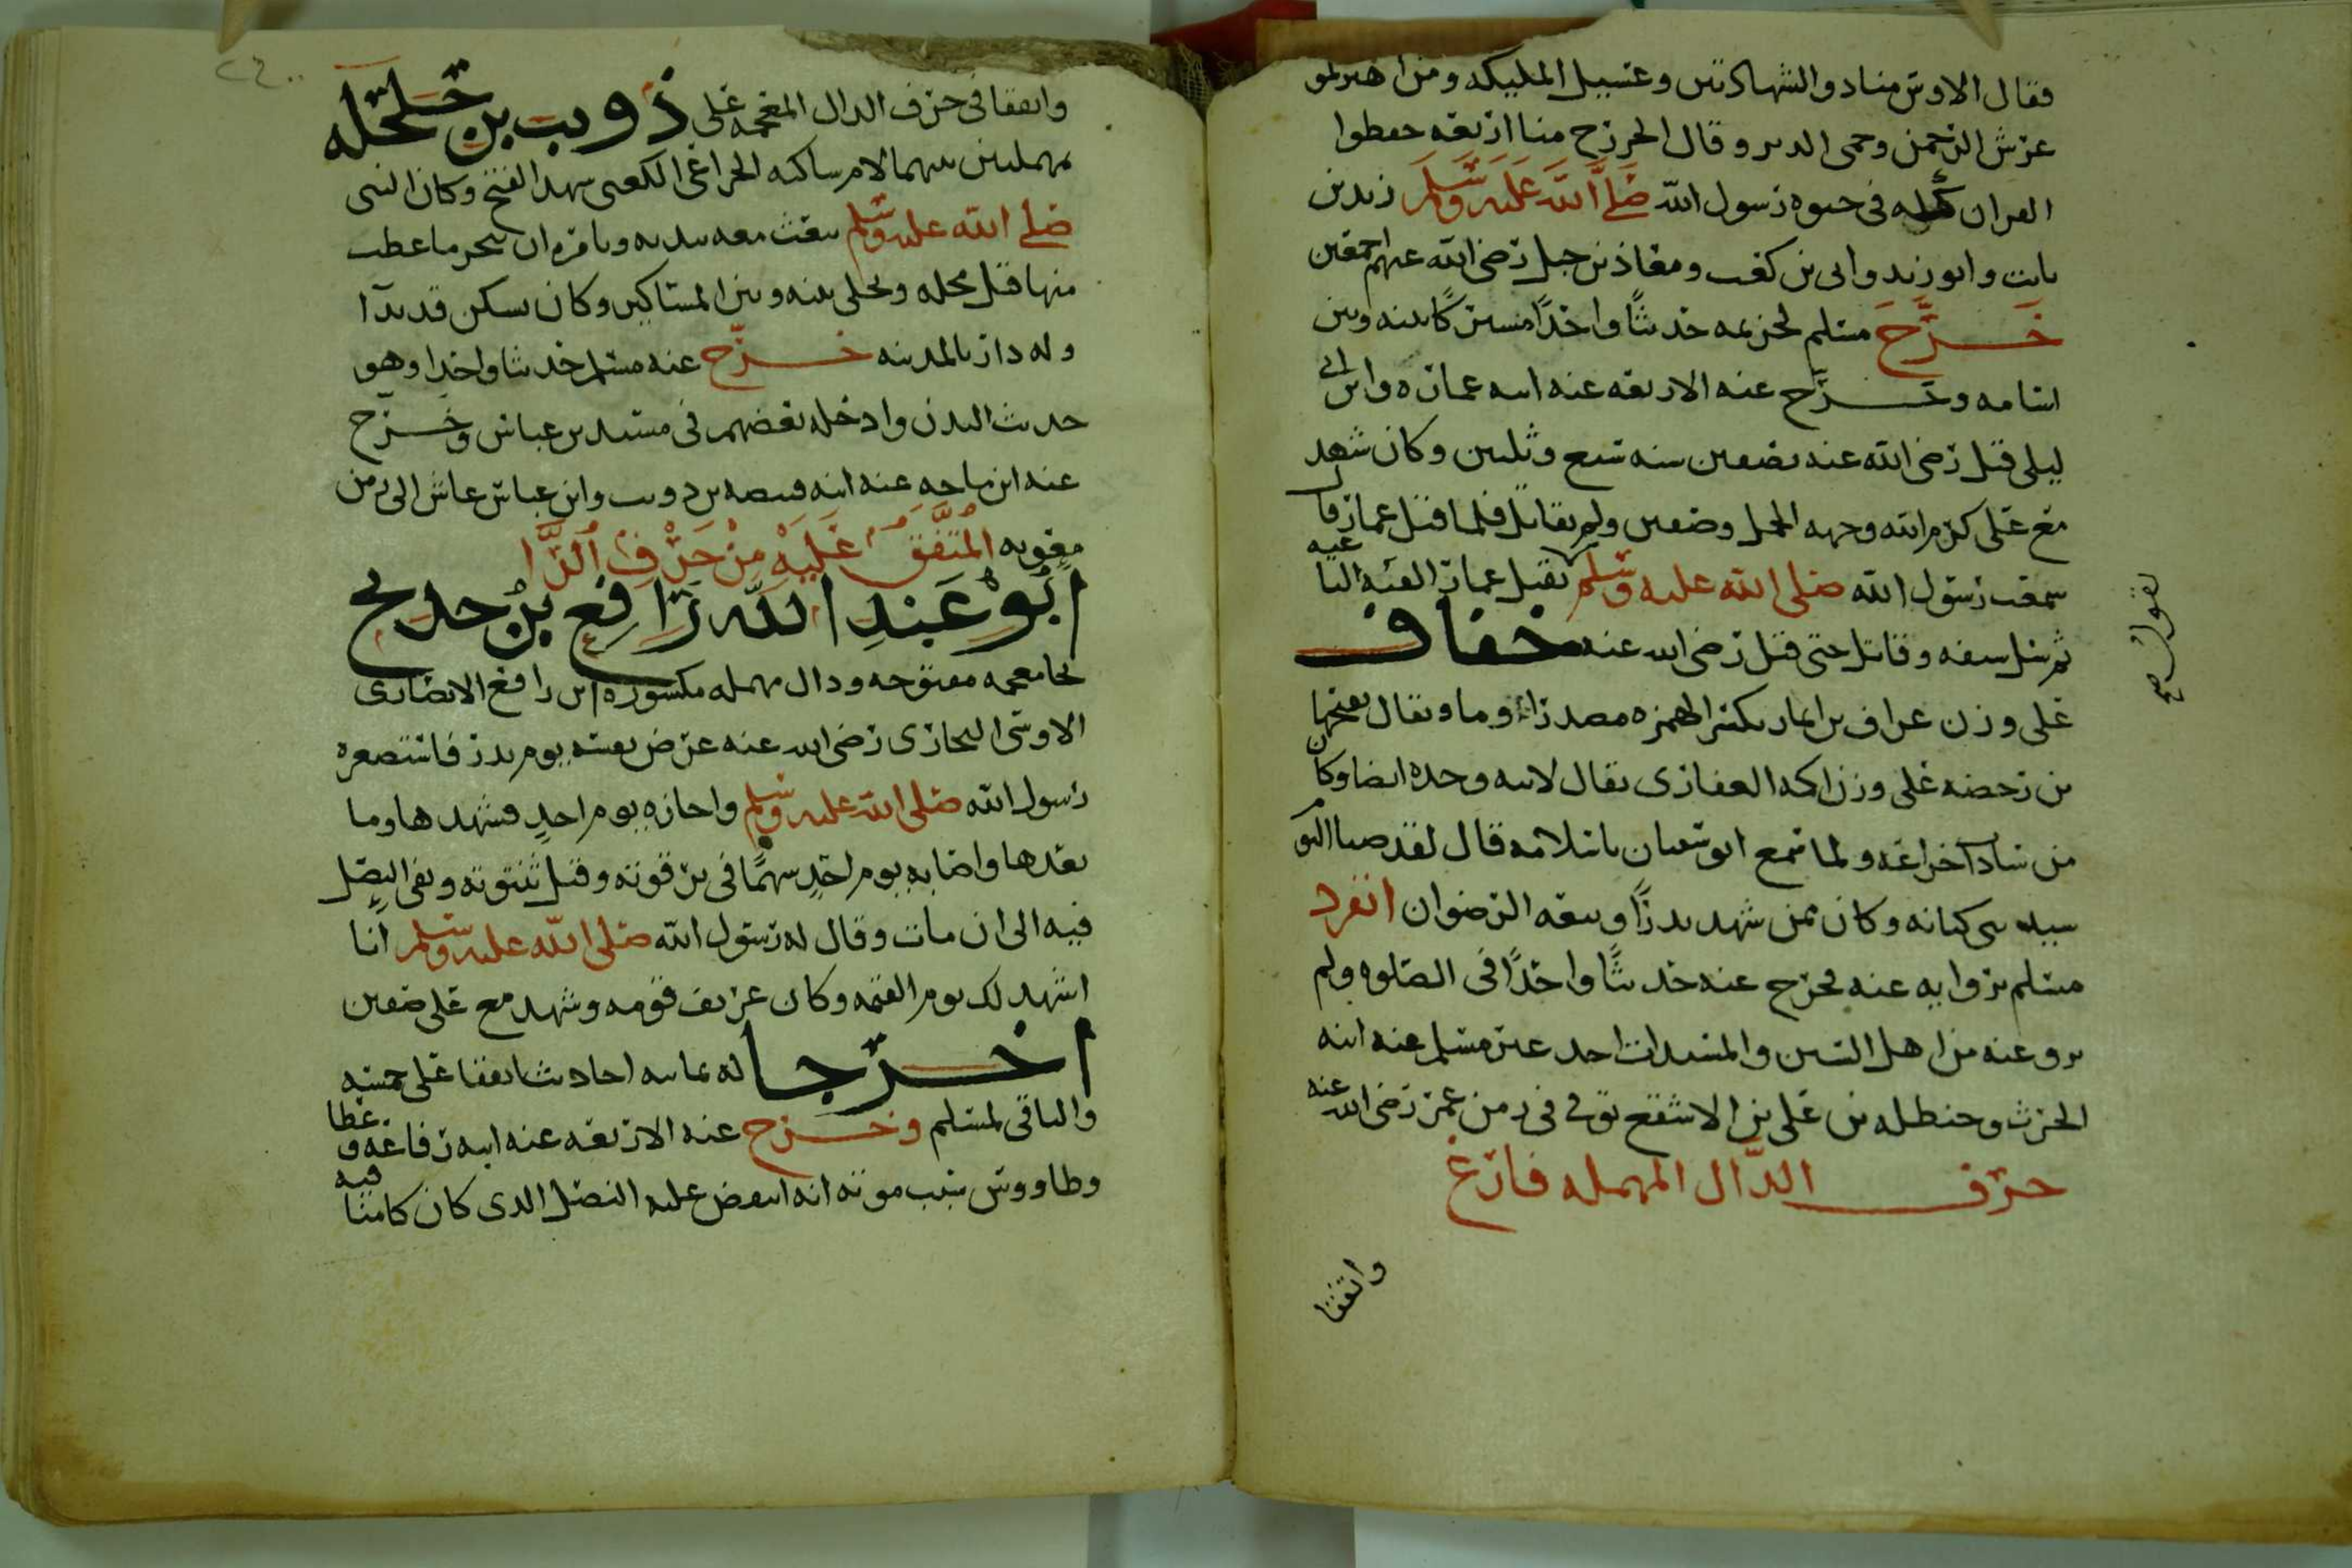 فقال الاوس منا ذو الشهادتين وغسيل الملئكه ومن اهتز لموته
عرش الرحمن وحمى الدبر وقال الخزرج منا اربعه حفظوا
القران كله في حيوه رسول الله صلى الله عليه وسلم زيد بن
ثابت وابو زيد وابى بن كعب ومعاذ بن جبل رضى الله عنهم اجمعين
خرج مسلم لخزيمه حديثًا واحدًا مشتركًا بينه وبين
اسامه وخرج عنه الاربعه عنه ابنه عماره وابن ابي
ليلى قتل رضى الله عنه بصفين سنه سبع وثلثين وكان شهد
مع على كرم الله وجهه الجمل وصفين ولم يقاتل فلما قتل عمار قال
سمعت رسول الله صلى الله عليه وسلم يقتل عمار الفئه الباغيه
يقول صح
ثم سل سيفه وقاتل حتى قتل رضى الله عنه خفاف
على وزن عراف بن ايماء بكسر الهمزه مصدر اوما ويقال بفتحها
بن رحضه على وزن اكه الغفارى يقال لابيه وجده ايضا وكان
من سادات خزاعه ولما سمع ابو سفيان باسلامه قال لقد صبا اليوم
سيد بنى كنانه وكان ممن شهد بدرًا وبيعه الرضوان انفرد
مسلم بروايه عنه فخرج عنه حديثًا واحدًا في الصلوه ولم
يرو عنه من اهل السنن والمسندات احد غير مسلم عنه ابنه
الحرث وحنظله بن على بن الاسقع توفى في زمن عمر رضى الله عنه
حرف الدال المهمله فارغ
واتفقا
واتفقا في حرف الدال المعجمه على ذويب بن حلحله
بمهملتين بينهما لام ساكنه الخزاعى الكعبى شهد الفتح وكان النبى
صلى الله عليه وسلم يبعث معه ببدنه ويامره ان ينحر ما عطب
منها قبل محله ويخلى بينه وبين المساكين وكان يسكن قديدًا
وله دار بالمدينه خرج عنه مسلم حديثا واحدا وهو
حديث البدن وادخله بعضهم في مسند بن عباس وخرج
عنه ابن ماجه عنه ابنه قبيصه بن ذويب وابن عباس عاش الى زمن
معويه المتفق عليه من حرف الرا
ابو عبد الله رافع بن خديج
بخا معجمه مفتوحه ودال مهمله مكسوره ابن رافع الانصارى
الاوسى النجارى رضى الله عنه عرض نفسه يوم بدر فاستصغره
رسول الله صلى الله عليه وسلم واجازه يوم احد فشهدها وما
بعدها واصابه يوم احد سهمًا في ترقوته وقيل ثندوته وبقى النصل
فيه الى ان مات وقال له رسول الله صلى الله عليه وسلم انا
اشهد لك يوم القيمه وكان عريف قومه وشهد مع على صفين
اخرجا له ثمانيه احاديث اتفقا على خمسه
والباقى لمسلم وخرج عنه الاربعه عنه ابنه رفاعه وعطا
وطاووس سبب موته انه انتقض عليه النصل الدى كان كامنا فيه